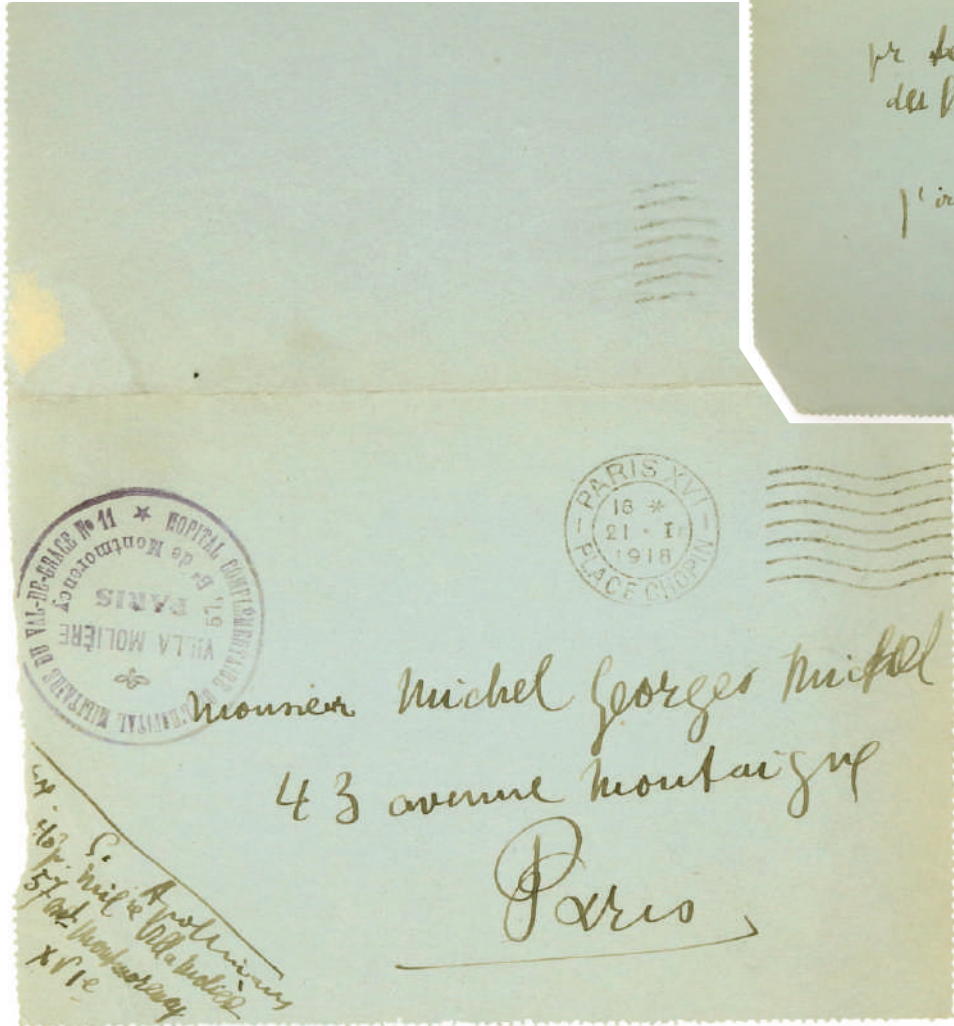 pr
des
j'ir
PARIS XVI
16 *
21 · I
1918
PLACE CHOPIN
HOPITAL COMPLÉMENTAIRE DE L'HOPITAL MILITAIRE DU VAL-DE-GRACE No 11
VILLA MOLIÈRE
57, Bd de Montmorency
PARIS
Monsieur Michel Georges Michel
43 avenue Montaigne
Paris
Exp. G. Apollinaire
Hôp. Milre Villa Molière
57 Montmorency
XVIe